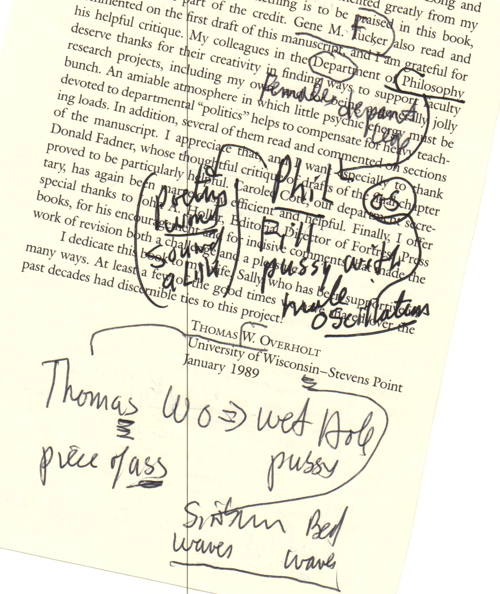 commented on the first draft of this manuscript, and I am grateful for
his helpful critique. My colleagues in the Department of Philosophy
deserve thanks for their creativity in finding ways to support faculty
research projects, including my own
bunch. An amiable atmosphere in which little psychic energy must be
devoted to departmental "politics" helps to compensate for heavy teach-
ing loads. In addition, several of them read and commented on sections
of the manuscript. I appreciate that, and want especially to thank
Donald Fadner, whose thoughtful critique of drafts of the chapter
proved to be particularly helpful. Carole department secre-
tary, has again been efficient and helpful. Finally, I offer
special thanks to John Editorial Director of Fortress Press
books, for his encouragement and for incisive comments that made the
work of revision both a challenge and a pleasure.
I dedicate this book wife, Sally who has been supportive
many ways. At least a few of the good times we have shared over the
past decades had discernible ties to this project.
THOMAS W. OVERHOLT
University of Wisconsin–Stevens Point
January 1989
Phil
Fill
pussy with
male
oscillations
os
poetry
wing
sound
alike
Thomas WO ⇒ wet Hole
piece of ass pussy
Bed
waves waves